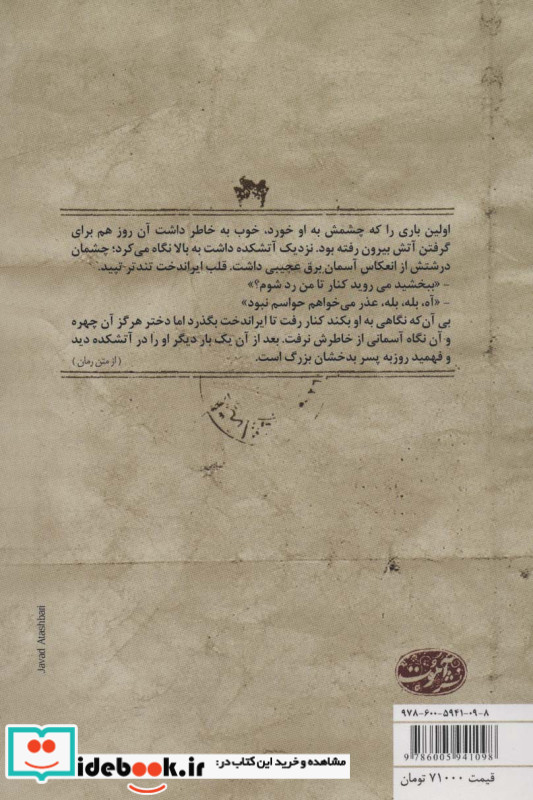 اولین باری را که چشمش به او خورد، خوب به خاطر داشت آن روز هم برای
گرفتن آتش بیرون رفته بود. نزدیک آتشکده داشت به بالا نگاه می‌کرد؛ چشمان
درشتش از انعکاس آسمان برق عجیبی داشت. قلب ایراندخت تندتر تپید.
- «ببخشید می روید کنار تا من رد شوم؟»
- «آه، بله، بله، عذر می‌خواهم حواسم نبود»
بی آن‌که نگاهی به او بکند کنار رفت تا ایراندخت بگذرد اما دختر هرگز آن چهره
و آن نگاه آسمانی از خاطرش نرفت. بعد از آن یک بار دیگر او را در آتشکده دید
و فهمید روزبه پسر بدخشان بزرگ است.
(از متن رمان)
Javad Atashbari
نشر آموت
۹۷۸-۶۰۰-۵۹۴۱-۰۹-۸
9 786005 941098
قیمت ۷۱۰۰۰ تومان
idebook.ir
مشاهده و خرید این کتاب در: